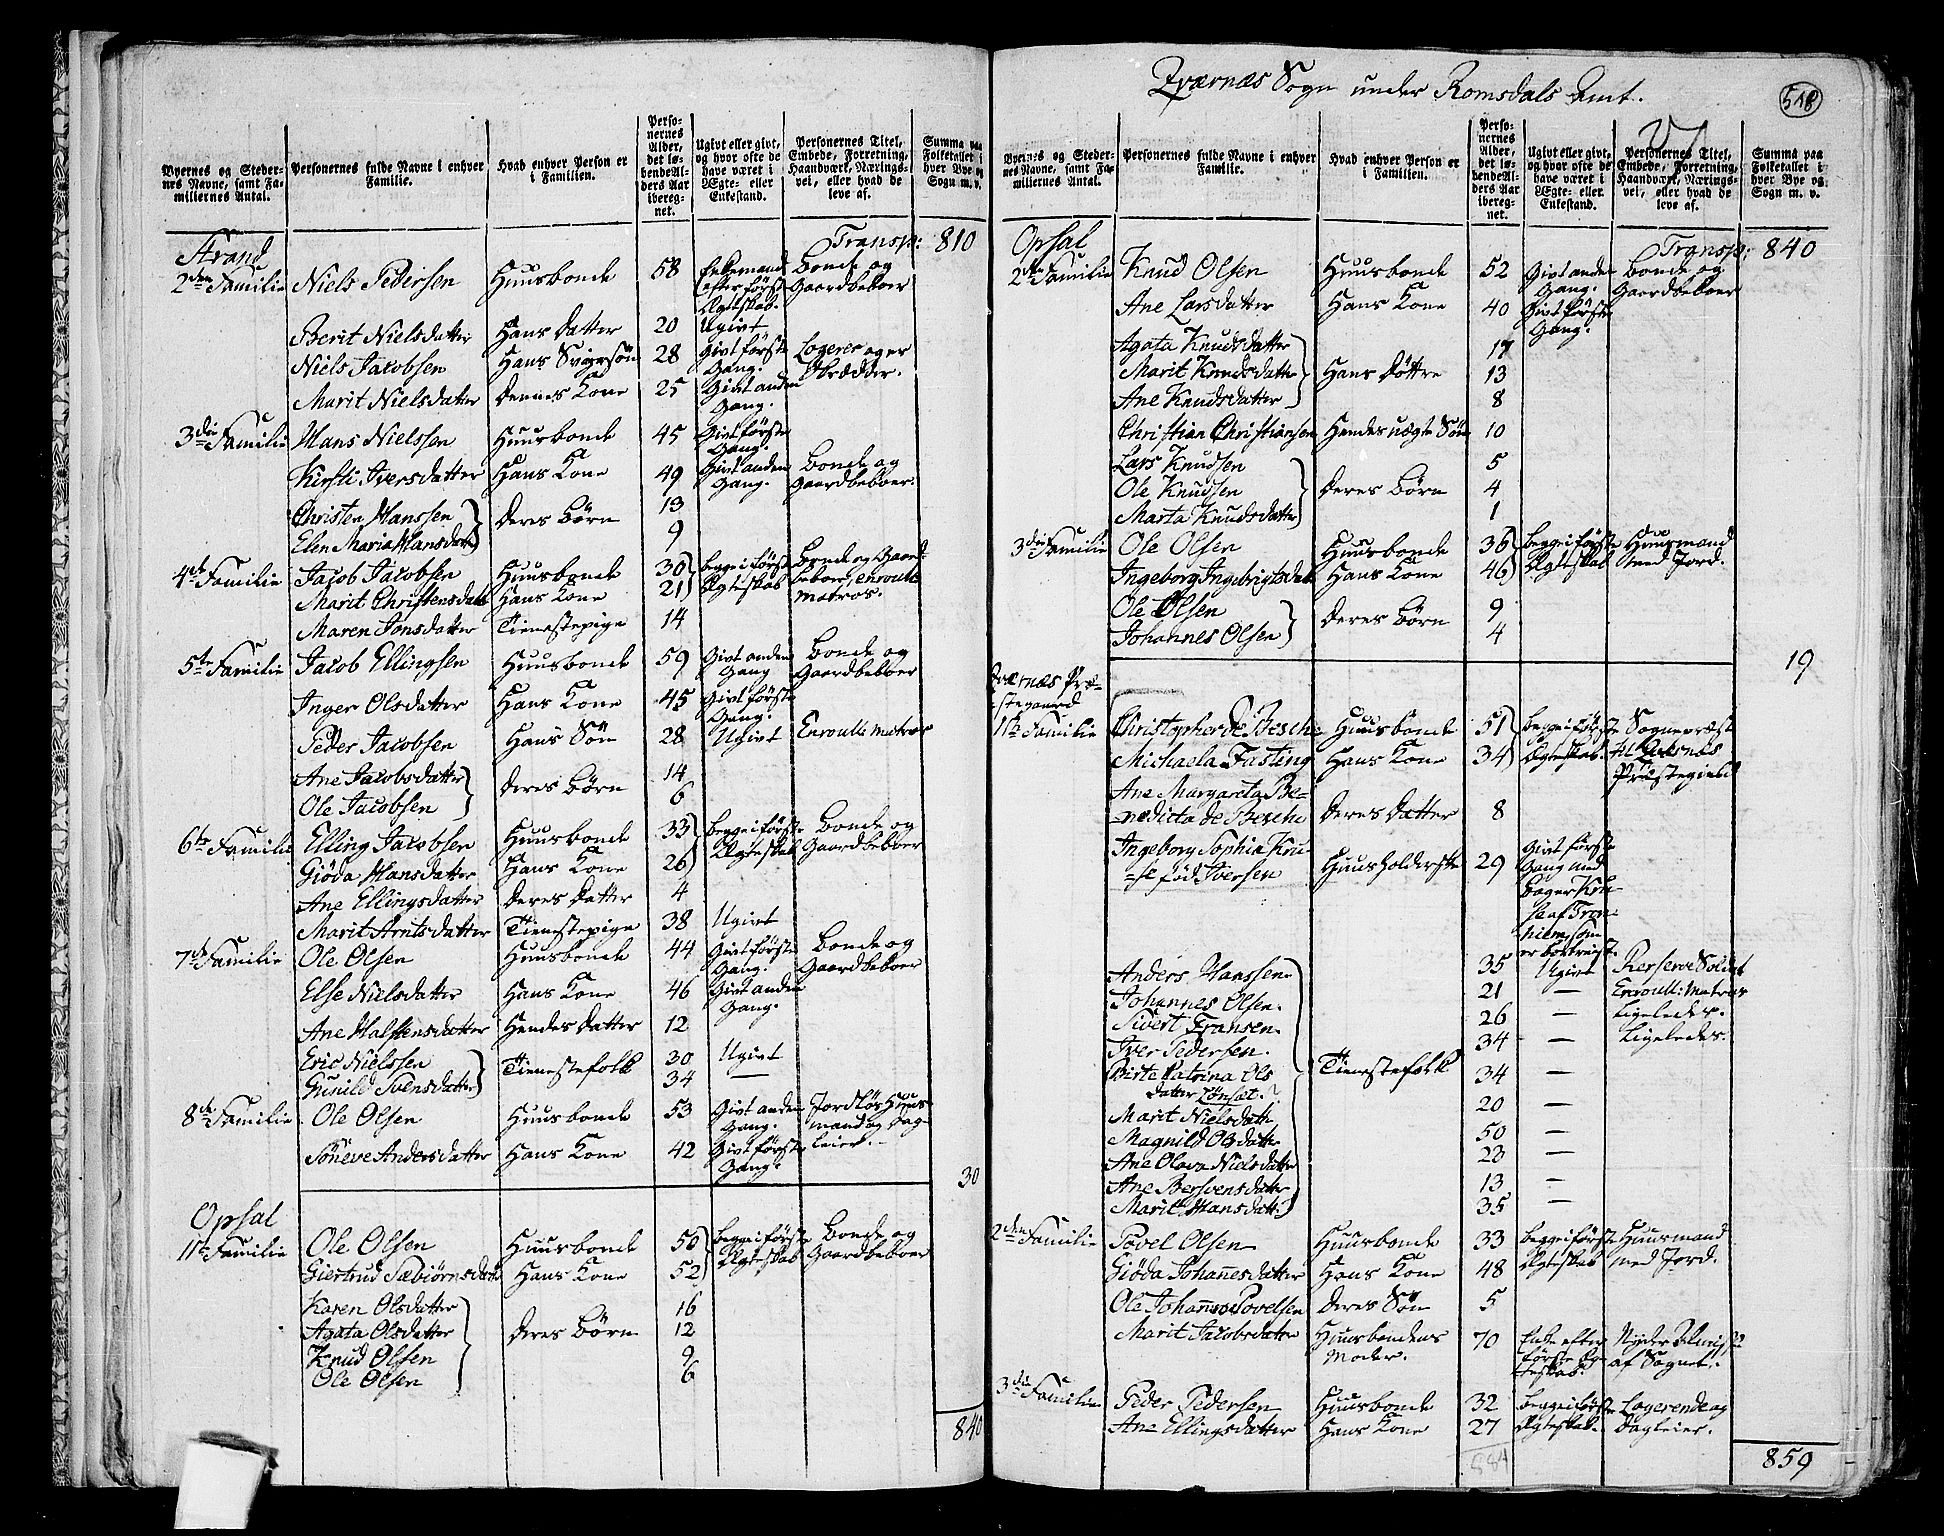 Qværnæs Sogn under Romsdals Amt.
518
Byernes og Stedernes Navne, samt Familiernes Antal. | Personernes fulde Navne i enhver Familie. | Hvad enhver Person er i Familien. | Personernes Alder, det løbende Alders Aar iberegnet. | Ugivt eller givt, og hvor ofte de have været i Ægte- eller Enkestand. | Personernes Titel, Embede, Forretning, Haandværk, Næringsvei, eller hvad de leve af. | Summa paa Folketallet i hver Bye og Sogn m. v.
Strand
Transp: 810
2den Familie Niels Pedersen Huusbonde 58 Enkemand efter først Ægteskab. Bonde og Gaardbeboer
Berit Nielsdatter Hans Datter 20 Ugivt
Niels Jacobsen Hans Svigersøn 28 Givt første Gang. Logerer og er Skrædder.
Marit Nielsdatter Dennes Kone 25 Givt anden Gang.
3die Familie Hans Nielsen Huusbonde 45 Givt første Gang.
Kirsti Iversdatter Hans Kone 49 Givt anden Gang. Bonde og Gaardbeboer.
Christen Hanssen 13
Deres Børn
Elen Maria Hansdatter 9
4de Familie Jacob Jacobsen Huusbonde 30 Begge i første Bonde og Gaard-
Marit Christensdatt Hans Kone 21 Ægteskab beboer, enroult matros.
Maren Jonsdatter Tienestepige 14
5te Familie Jacob Ellingsen Huusbonde 59 Givt anden Gang Bonde og Gaardbeboer
Inger Olsdatter Hans Kone 45 Givt første Gang.
Peder Jacobsen Hans Søn 28 Ugivt Enroull: matros
Ane Jacobsdatter 14
Deres Børn
Ole Jacobsen 6
6te Familie Elling Jacobsen Huusbonde 33 Begge i første Bonde og
Giøda Hansdatter Hans Kone 26 Ægteskab Gaardbeboer
Ane Ellingsdatter Deres Datter 4
Marit Arntsdatter Tienestepige 38 Ugivt
7de Familie Ole Olsen Huusbonde 44 Givt første Gang. Bonde og Gaardbeboer
Else Nielsdatter Hans Kone 46 Givt anden Gang.
Ane Halstensdatter Hendes Datter 12
Eric Nielssen 30 Ugivt
Tienestefolk
Gunild Svensdatter 34 —
8de Familie Ole Olsen Huusbonde 53 Givt anden Gang. Jordløs Huusmand og Dagleier.
Synneve Andersdatter Hans Kone 42 Givt første Gang.
30
Opsal
1te Familie Ole Olsen Huusbonde 50 Begge i første Bonde og
Giertrud Sæbiørnsdatt Hans Kone 52 Ægteskab Gaardbeboer
Karen Olsdatter 16
Agata Olsdatter Deres Børn 12
Knud Olsen 9
Ole Olsen 6
840
Byernes og Stedernes Navne, samt Familiernes Antal. | Personernes fulde Navne i enhver Familie. | Hvad enhver Person er i Familien. | Personernes Alder, det løbende Alders Aar iberegnet. | Ugivt eller givt, og hvor ofte de have været i Ægte- eller Enkestand. | Personernes Titel, Embede, Forretning, Haandværk, Næringsvei, eller hvad de leve af. | Summa paa Folketallet i hver Bye og Sogn m. v.
Opsal
Transp: 840
2den Familie Knud Olsen Huusbonde 52 Givt anden Gang. Bonde og Gaardbeboer
Ane Larsdatter Hans Kone 40 Givt første Gang.
Agata Knudsdatter 17
Marit Knudsdatter Hans Døttre 13
Ane Knudsdatter 8
Christian Christiansen Hendes uægte Søn 10
Lars Knudsen 5
Ole Knudsen Deres Børn 4
Marta Knudsdatter 1
3die Familie Ole Olsen Huusbonde 36 Begge i første Huusmand
Ingeborg Ingebrigtsdatt Hans Kone 46 Ægteskab med Jord.
Ole Olsen 9
Deres Børn
Johannes Olsen 4
19
Qværnæs Præ-
stegaard
1te Familie Christopher de Besche Huusbonde 51 Begge i første Sognepræst
Michaela Fasting Hans Kone 34 Ægteskab. til Qværnæs Præstegield
Ane Margareta Be-
nedicta de Besche Deres Datter 8
Ingeborg Sophia Kru-
se fød Iversen Huusholderske 29 Givt første Gang med Kru-
se af Tron-
hiem, som
er bortreist.
Anders Hanssen 35 Ugivt Reserve Soldat
Johannes Olsen. 21 — Enroull: matros
Sivert Fransen. 26 — Ligeledes.
Iver Pedersen. 34 — Ligeledes.
Birte Catrina Ols Tienestefolk 34 —
datter Lønset.
Marit Nielsdatt 20 —
Magnild Olsdatte 50 —
Ane Olava Nielsdatter 23 —
Ane Bersvensdatter 13 —
Marit Hansdatt: 35 —
2den Familie Povel Olsen Huusbonde 33 Begge i første Huusmand
Giøda Johannesdatter Hans Kone 48 Ægteskab med Jord.
Ole Johannes Povelsen Deres Søn 5
Marit Jacobsdatter Huusbondens Moder. 70 Enke efter første Æg-
teskab. Nyder Almisse af Sognet.
3die Familie Peder Pedersen Huusbonde 32 Begge i første Logerende og
Ane Ellingsdatter Hans Kone 27 Ægteskab. Dagleier.
884
859